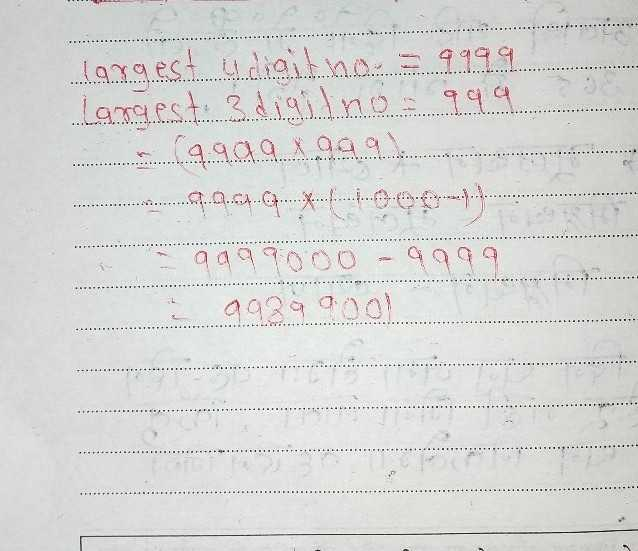 largest 4 digit no. = 9999
largest 3 digit no = 999
= (9999 x 999)
= 9999 x (1000-1)
= 9999000 - 9999
= 99899001